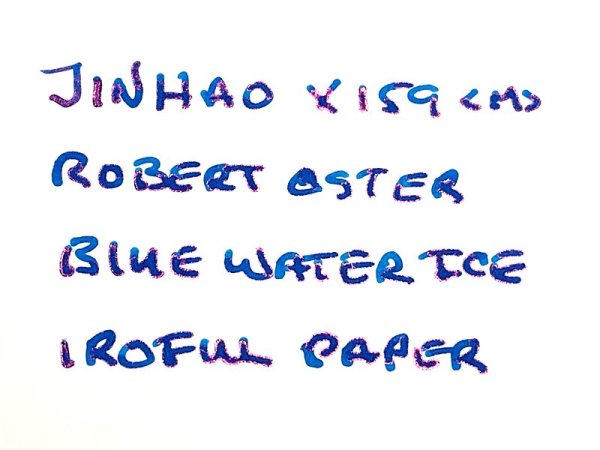 JINHAO X159 <M>
ROBERT OSTER
BLUE WATER ICE
IROFUL PAPER